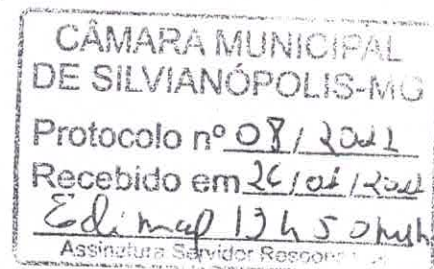 CÂMARA MUNICIPAL
DE SILVIANÓPOLIS-MG
Protocolo nº 08 /
Recebido em 26 / 01 /
13 h 50 min
Assinatura Servidor